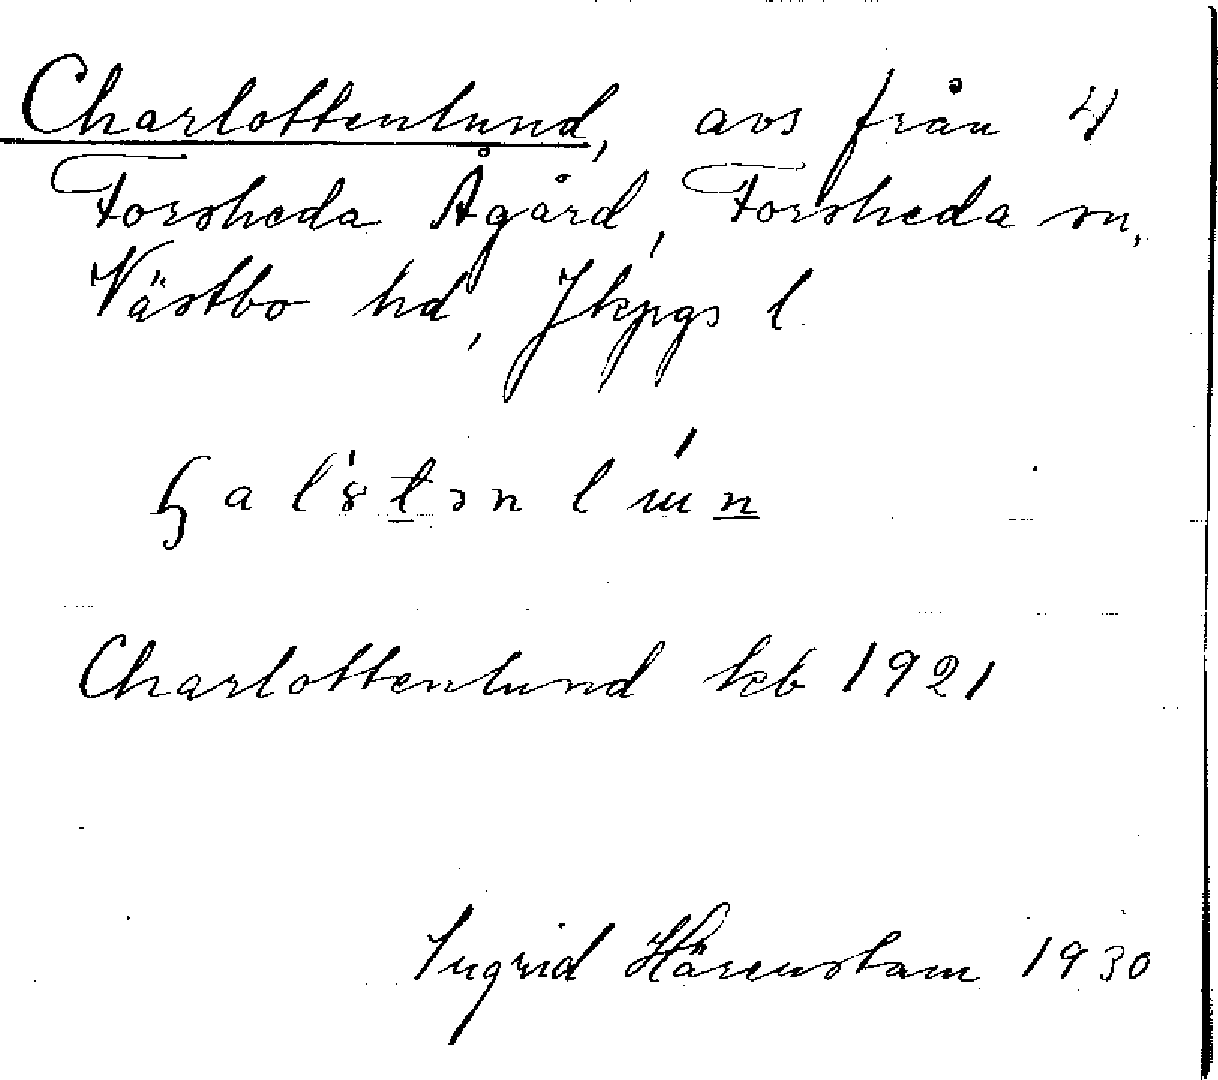 Charlottenlund, avs från 4
Forsheda Ågård, Forsheda sn,
Västbo hd, Jkpgs l
Charlottenlund kb 1921
Ingrid Härenstam 1930